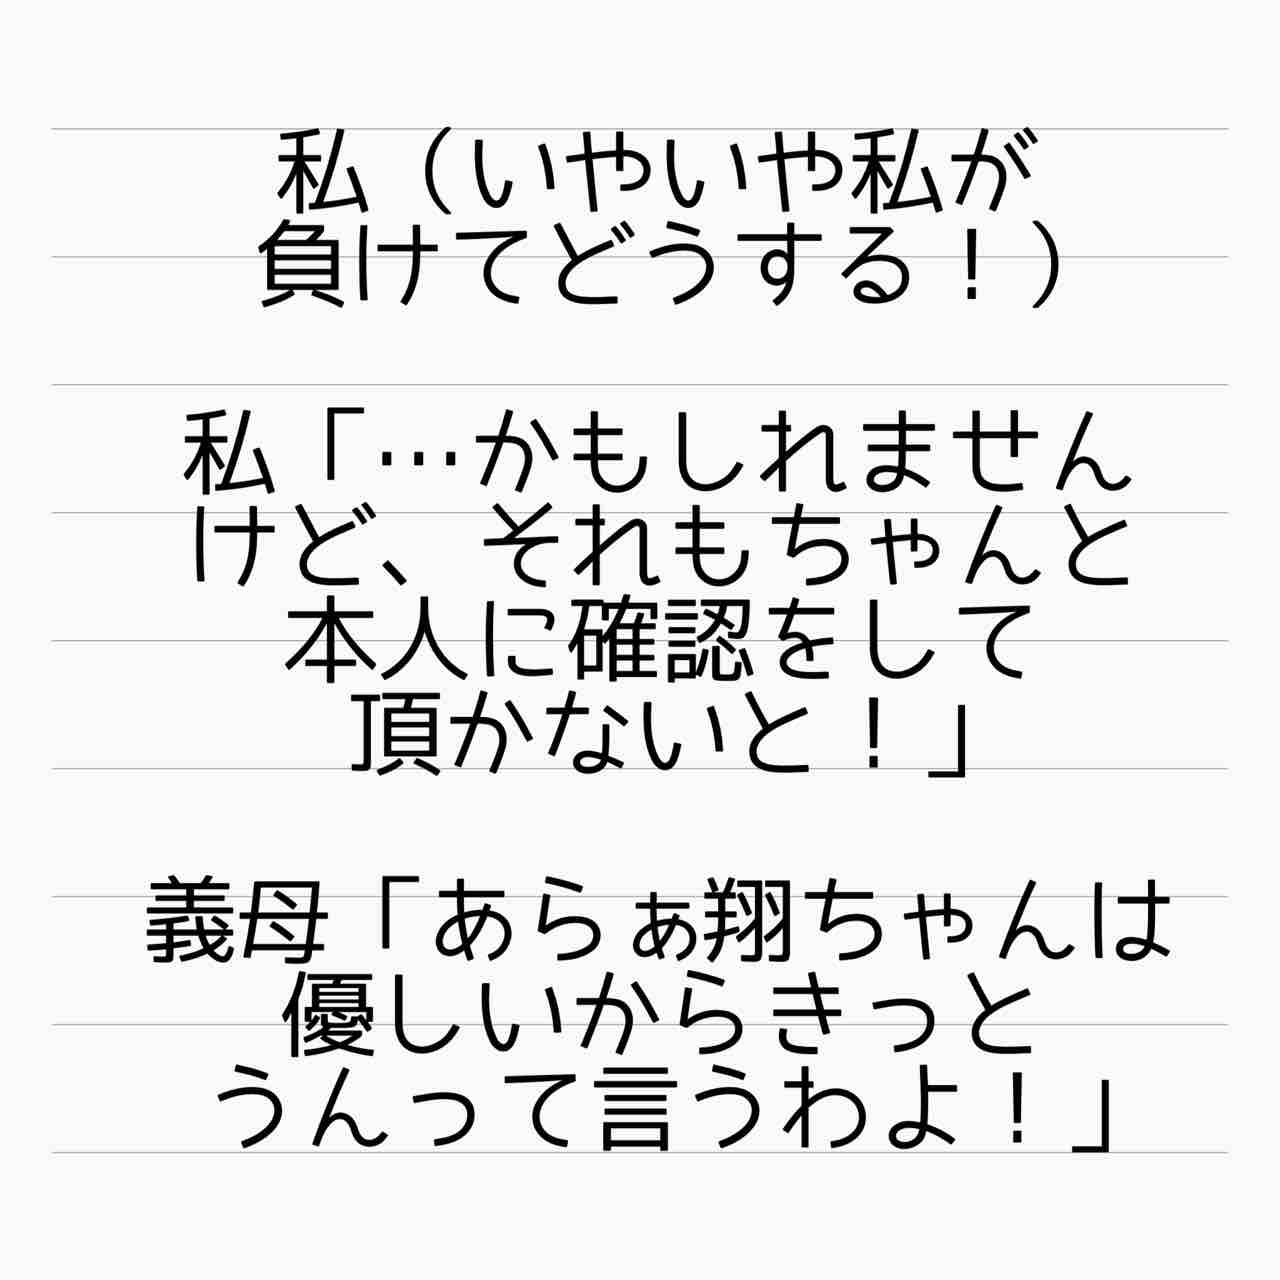 私（いやいや私が
負けてどうする！）
私「…かもしれません
けど、それもちゃんと
本人に確認をして
頂かないと！」
義母「あらぁ翔ちゃんは
優しいからきっと
うんって言うわよ！」